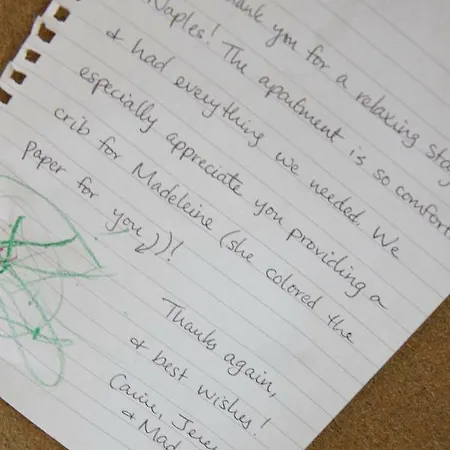 thank you for a relaxing stay
Naples! The apartment is so comfort
& had everything we needed. We
especially appreciate you providing a
crib for Madeleine (she colored the
paper for you)!
Thanks again,
& best wishes!
& Mad